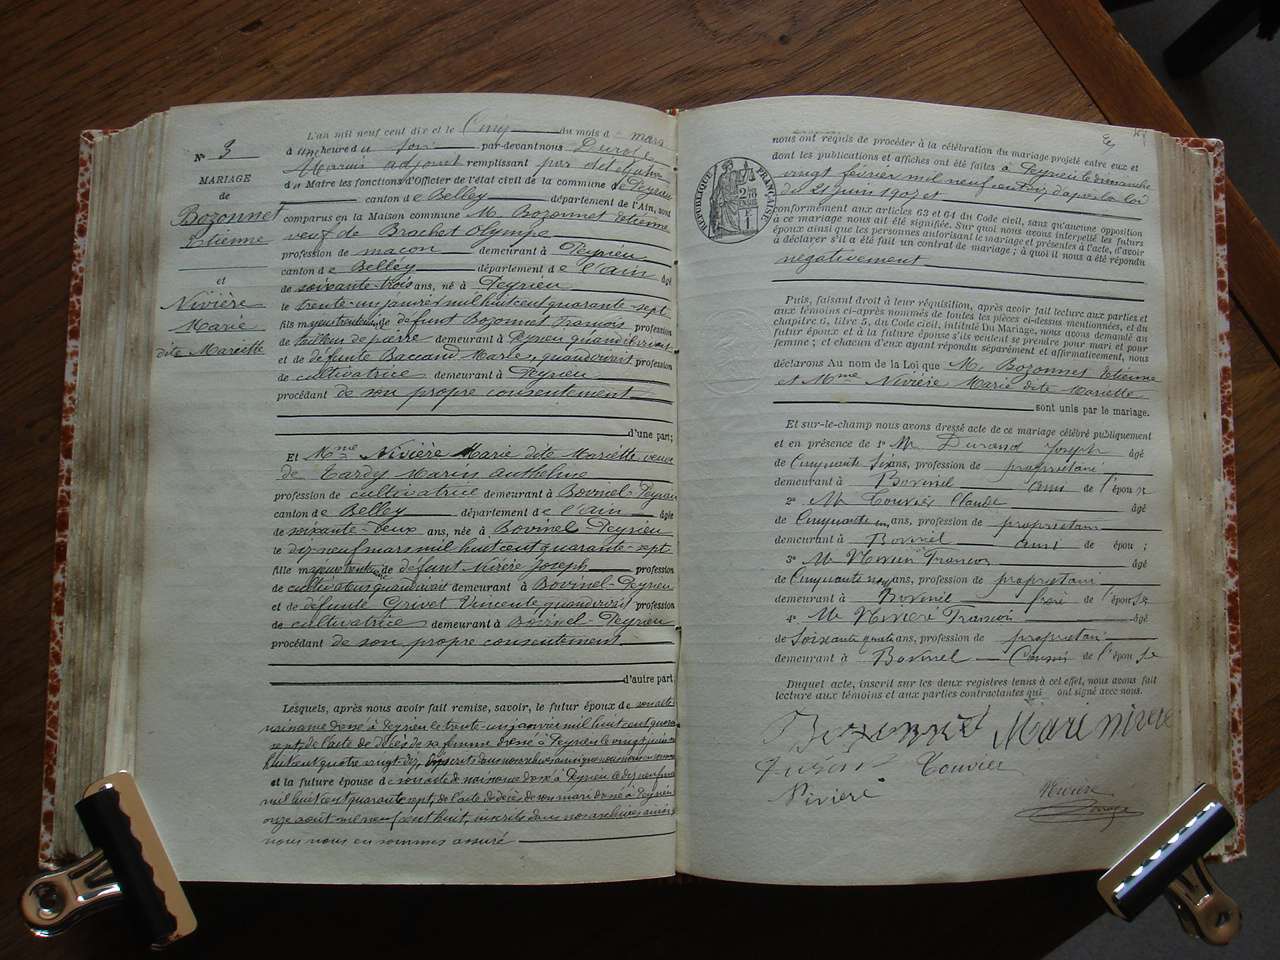 N° 3
MARIAGE
de
Bozonnet
Etienne
et
Nivière
Marie
dite Mariette
L'an mil neuf cent dix et le Cinq du mois de mars
à une heure du soir par-devant nous
Marius adjoint remplissant par délégation
du Maire les fonctions d'Officier de l'état civil de la commune de Peyrieu
canton de Belley département de l'Ain, sont
comparus en la Maison commune M. Bozonnet Etienne
veuf de Brachet Olympe
profession de maçon demeurant à Peyrieu
canton de Belley département de l'ain âgé
de soixante-trois ans, né à Peyrieu
le trente-un janvier mil huit cent quarante-sept
fils majeur de défunt Bozonnet Francois profession
de tailleur de pierre demeurant à Peyrieu quand il vivait
et de défunte Baccand Marie, quand vivait profession
de cultivatrice demeurant à Peyrieu
procédant de son propre consentement
d'une part;
Et Mme Nivière Marie dite Mariette veuve
de Tardy Marin Anthelme
profession de cultivatrice demeurant à Bovinel-Peyrieu
canton de Belley département de l'ain âgée
de soixante-deux ans, née à Bovinel-Peyrieu
le dix-neuf mars mil huit cent quarante-sept
fille majeure de défunt Nivière Joseph profession
de cultivateur quand vivait demeurant à Bovinel-Peyrieu
et de défunte Grivet Vincente quand vivait profession
de cultivatrice demeurant à Bovinel-Peyrieu
procédant de son propre consentement
d'autre part
Lesquels, après nous avoir fait remise, savoir, le futur époux de son acte
naissance donné à Peyrieu le trente-un janvier mil huit cent quarante
sept, de l'acte de décès de sa femme donné à Peyrieu le vingt juin
huit cent quatre vingt dix, inscrits dans nos archives ainsi que nous nous en sommes
et la future épouse de son acte de naissance donné à Peyrieu le dix neuf mars
mil huit cent quarante sept, de l'acte de décès de son mari donné à Peyrieu
onze août mil neuf cent huit, inscrits dans nos archives ainsi
nous nous en sommes assuré
nous ont requis de procéder à la célébration du mariage projeté entre eux et
dont les publications et affiches ont été faites à Peyrieu le dimanche
vingt février mil neuf cent dix d'après la loi
du 21 juin 1907 et
conformément aux articles 63 et 64 du Code civil, sans qu'aucune opposition
à ce mariage nous ait été signifiée. Sur quoi nous avons interpellé les futurs
époux ainsi que les personnes autorisant le mariage et présentes à l'acte, d'avoir
à déclarer s'il a été fait un contrat de mariage; à quoi il nous a été répondu
négativement
RÉPUBLIQUE FRANÇAISE
Puis, faisant droit à leur réquisition, après avoir fait lecture aux parties et
aux témoins ci-après nommés de toutes les pièces ci-dessus mentionnées, et du
chapitre 6, titre 5, du Code civil, intitulé Du Mariage, nous avons demandé au
futur époux et à la future épouse s'ils veulent se prendre pour mari et pour
femme; et chacun d'eux ayant répondu séparément et affirmativement, nous
déclarons Au nom de la Loi que M. Bozonnet Etienne
et Mme Nivière Marie dite Mariette
sont unis par le mariage.
Et sur-le-champ nous avons dressé acte de ce mariage célébré publiquement
et en présence de 1° Mr Durand Joseph âgé
de Cinquante Six ans, profession de propriétaire
demeurant à Bovinel ami de l'époux
2° M Couvier Claude âgé
de Cinquante un ans, profession de propriétaire
demeurant à Bovinel ami de épou ;
3° Mr Francois âgé
de Cinquante ans, profession de propriétaire
demeurant à Bovinel frère de l'épouse
4° Mr Nivière Francois âgé
de Soixante quatre ans, profession de propriétaire
demeurant à Bovinel Cousin de l'épouse
Duquel acte, inscrit sur les deux registres tenus à cet effet, nous avons fait
lecture aux témoins et aux parties contractantes qui ont signé avec nous.
Bozonnet Mari nivere
Durand Couvier
Niviere